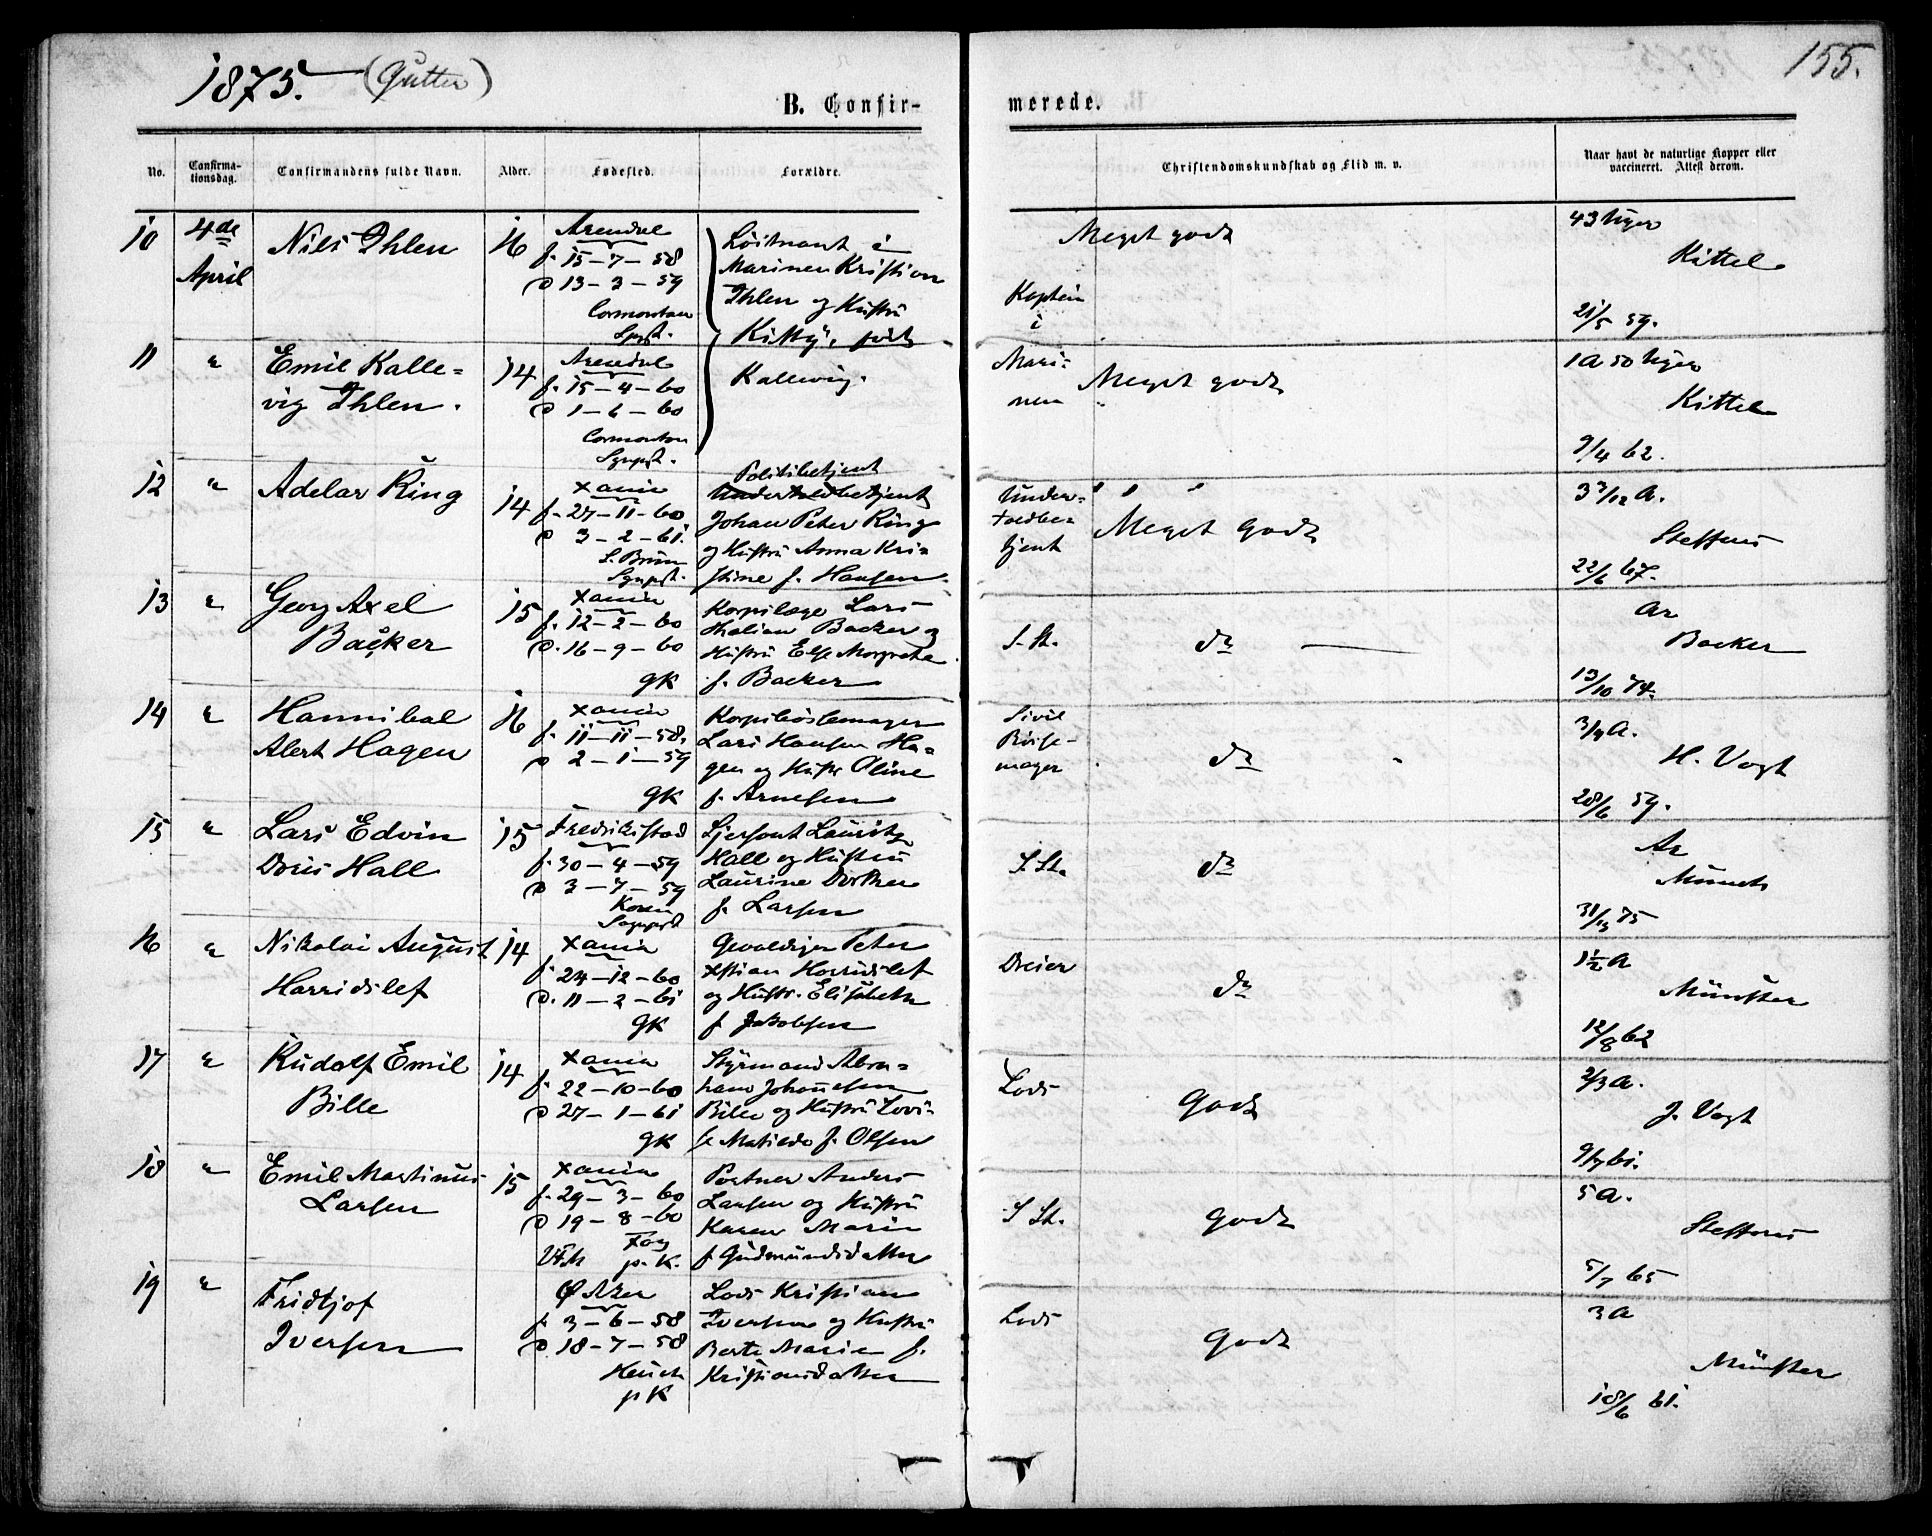 1875. (Gutter)
155.
B. Confir-
merede.
No.
Confirma-
tionsdag.
Confirmandens fulde Navn.
Alder.
Fødested.
Forældre.
Christendomskundskab og Flid m. v.
Naar havt de naturlige Kopper eller
vaccineret. Attest derom.
10
4de
April
Nils Ihlen
16
Arendal
f. 15-7-58
d 13-3-59
Løitnant i
Marinen Kristian
Ihlen og Hustru
Kitty, født
Kallevig.
Kaptein
i
Mari-
nen
Meget godt
43 Uger
Kittel
21/5 59.
11
"
Emil Kalle-
vig Ihlen.
14
Arendal
f. 15-4-60
d 1-6-60
Meget godt
1 A 50 Uger
Kittel
9/4 62.
12
"
Adelar Ring
14
Xania
f. 27-11-60
d 3-2-61.
S. Bruun
Sgnpst.
Politibetjent
Johan Peter Ring
og Hustru Anna Kri-
stine f. Hansen
Under-
toldbe-
tjent
Meget Godt
3 3/12 A.
Steffens
22/6 67.
13
"
Georg Axel
Backer
15
Xania
f. 12-2-60
d. 16-9-60
GK
Korpslæge Lars
Thalian Backer og
Hustru Else Margrete
f. Backer
S. St.
do
Ar
Backer
13/10 74.
14
"
Hannibal
Alert Hagen
16
Xania
f. 11-11-58.
d 2-1-59
GK
Korpsbøssemager
Lars Hansen Ha-
gen og Hustr Oline
f. Arnesen
Sivil
Bøsse-
mager
do
3/4 A.
H. Vogt
28/6 59.
15
"
Lars Edvin
Dries Hall
15
Fredrikstad
f. 30-4-59
d 3-7-59
Koren
Sognpst
Sjersant Lauritz
Hall og Hustru
Laurine Dorthea
f. Larsen
S St.
do
Ar
Münster
75
16
"
Nikolai August
Harridslef
14
Xania
f. 24-12-60
d. 11-2-61
GK
Gevaldiger Peter
Xstian Harridslef
og Hustr. Elisabeth
f Jakobsen
Dreier
do
1 1/2 A
Münster
12/8 62
17
"
Rudolf Emil
Bille
14
Xania
f. 22-10-60
d 27-1-61
GK
Styrmand Abra-
ham Johannesen
Bille og Hustru Lovi-
se Matilde f. Olsen
Lods
Godt
2/3 A.
J. Vogt
9/7 61.
18
"
Emil Martinus
Larsen
15
Xania
f. 29-3-60
d 19-8-60
p. K.
Portner Anders
Larsen og Hustru
Karen Marie
f Gudmundsdatter
S St.
Godt
5 A.
Steffens
5/7 65
19
"
Fridtjof
Iversen
Ø Aker
f. 3-6-58
d 18-7-58
Heuch
p K
Lods Kristian
Iversen og Hustru
Berte Marie f.
Kristiansdatter
Lods
Godt
3 A
Münster
18/6 61.